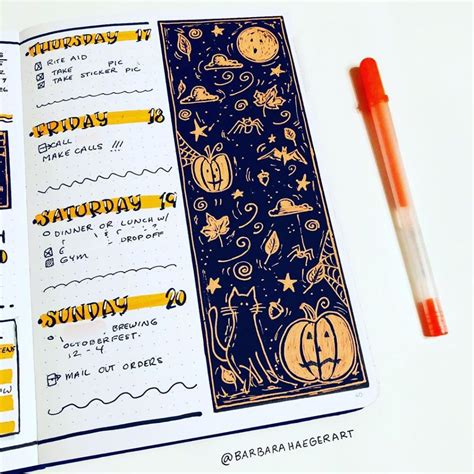 THURSDAY 17
RITE AID
TAKE PIC
TAKE STICKER PIC
FRIDAY 18
CALL
MAKE CALLS !!!
SATURDAY 19
DINNER OR LUNCH W/
DROP OFF
GYM
SUNDAY 20
BREWING
OCTOBERFEST
12 - 4
MAIL OUT ORDERS
@BARBARAHAEGERART